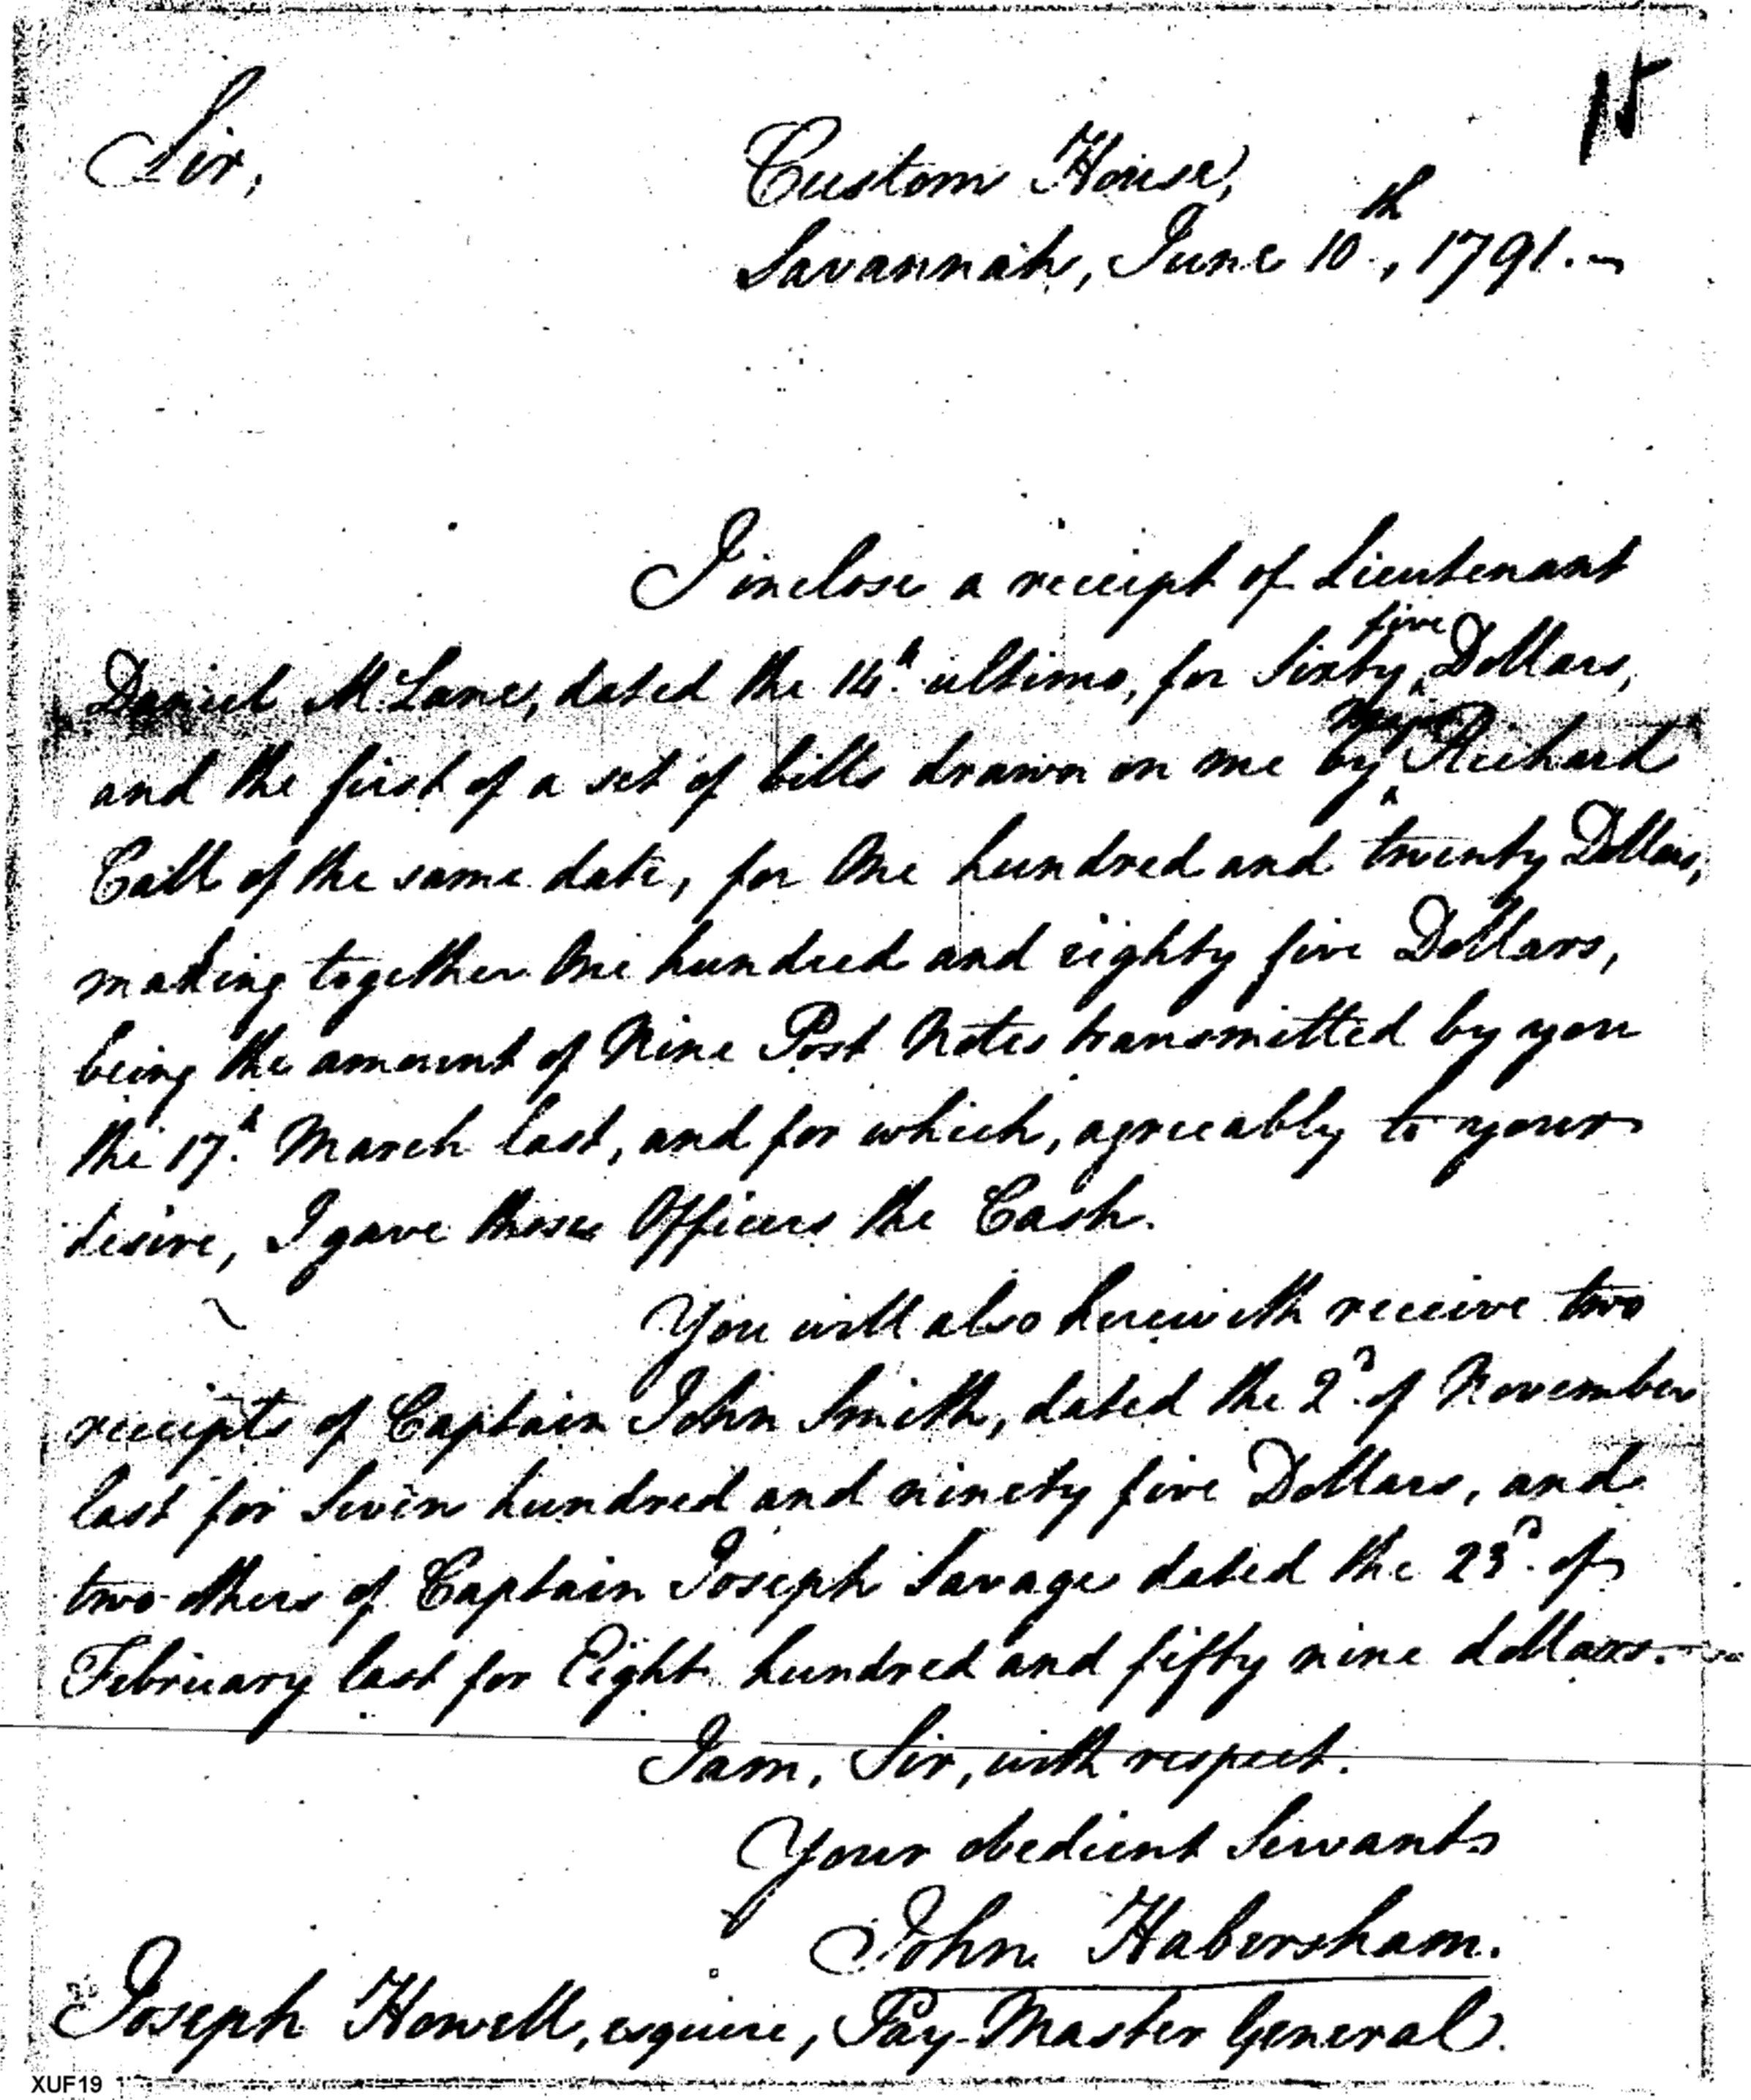 15
Sir,
Custom House,
Savannah, June 10th, 1791.
I inclose a receipt of Lieutenant
Daniel McLane, dated the 14h. ultimo, for Sixty five Dollars,
and the first of a set of bills drawn on me by Major Richard
Call of the same date, for One hundred and twenty Dollars,
making together One hundred and eighty five Dollars,
being the amount of Nine Post Notes transmitted by you
the 17h. March last, and for which, agreeably to your
desire, I gave those Officers the Cash.
You will also herewith receive two
receipts of Captain John Smith, dated the 2d. of November
last for Seven hundred and ninety five Dollars, and
two others of Captain Joseph Savage dated the 23d. of
February last for Eight hundred and fifty nine dollars.
I am, Sir, with respect.
Your obedient Servant
John Habersham.
Joseph Howell, esquire, Pay-Master General.
XUF19